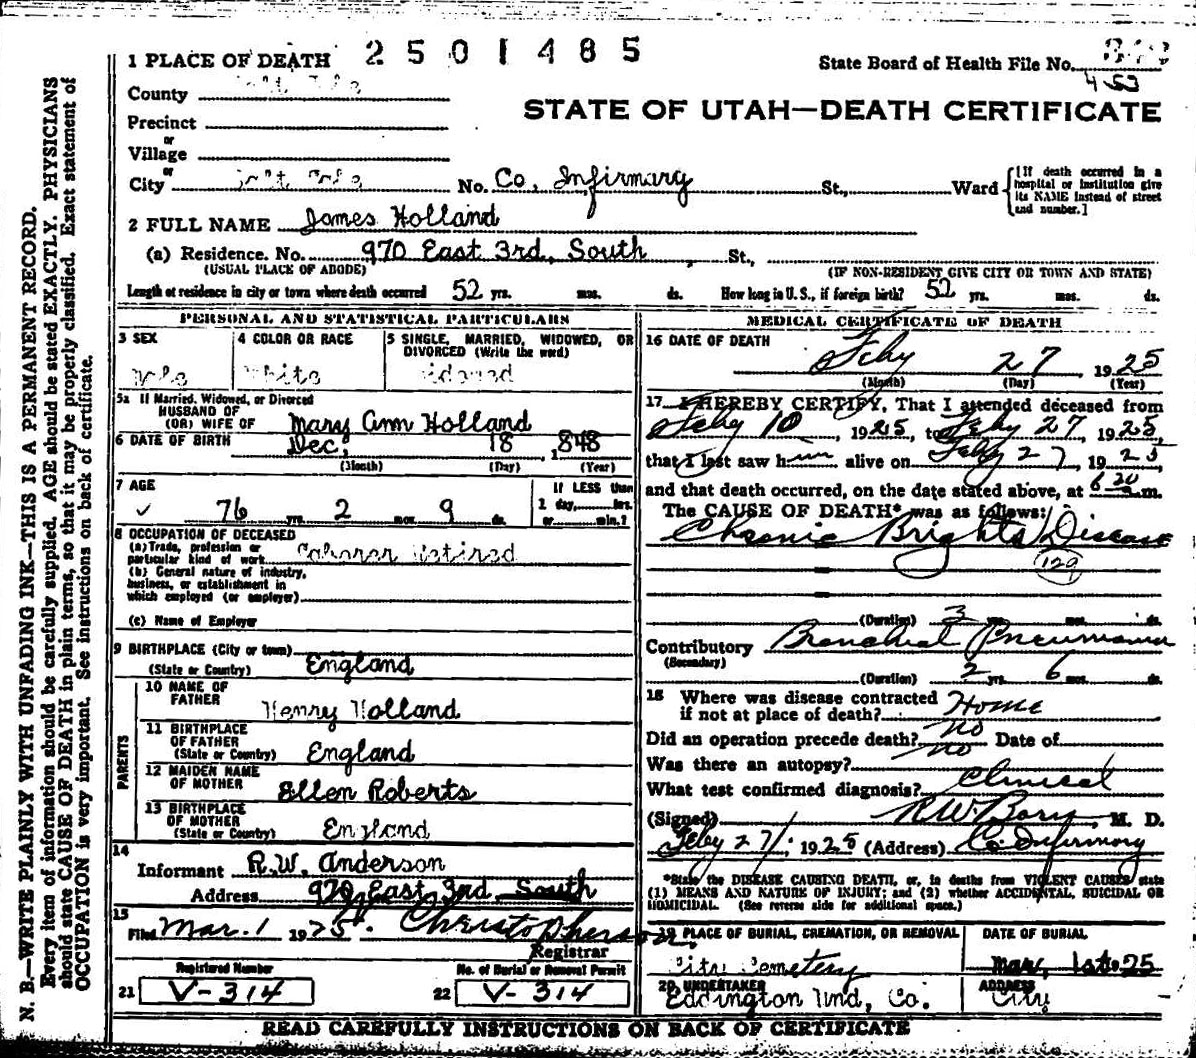 2501485
1 PLACE OF DEATH
State Board of Health File No.
453
County
STATE OF UTAH—DEATH CERTIFICATE
Precinct
or
Village
or
City Salt Lake No. Co. Infirmary St., Ward
[If death occurred in a hospital or institution give its NAME instead of street and number.]
2 FULL NAME James Holland
(a) Residence. No. 970 East 3rd, South, St.,
(USUAL PLACE OF ABODE) (IF NON-RESIDENT GIVE CITY OR TOWN AND STATE)
Length of residence in city or town where death occurred 52 yrs. mos. ds. How long in U. S., if foreign birth? 52 yrs. mos. ds.
PERSONAL AND STATISTICAL PARTICULARS
3 SEX
Male
4 COLOR OR RACE
White
5 SINGLE, MARRIED, WIDOWED, OR DIVORCED (Write the word)
Widowed
5a If Married, Widowed, or Divorced
HUSBAND OF
(OR) WIFE OF Mary Ann Holland
6 DATE OF BIRTH Dec, 18, 848
(Month) (Day) (Year)
7 AGE
✓ 76 yrs. 2 mos. 9 ds.
If LESS than
1 day, hrs.
or min.?
8 OCCUPATION OF DECEASED
(a) Trade, profession or
particular kind of work Laborer Retired
(b) General nature of industry,
business, or establishment in
which employed (or employer)
(c) Name of Employer
9 BIRTHPLACE (City or town)
(State or Country) England
PARENTS
10 NAME OF
FATHER Henry Holland
11 BIRTHPLACE
OF FATHER
(State or Country) England
12 MAIDEN NAME
OF MOTHER Ellen Roberts
13 BIRTHPLACE
OF MOTHER
(State or Country) England
14
Informant R.W. Anderson
Address 970 East 3rd South
15
Filed Mar. 1 1925. Christopherson.
Registrar
Registered Number
21 V-314
No. of Burial or Removal Permit
22 V-314
MEDICAL CERTIFICATE OF DEATH
16 DATE OF DEATH
Feby 27 1925
(Month) (Day) (Year)
17 I HEREBY CERTIFY, That I attended deceased from
Feby 10, 1925, to Feby 27, 1925,
that I last saw him alive on Feby 27, 1925
and that death occurred, on the date stated above, at 6 20 m.
The CAUSE OF DEATH* was as follows:
Chronic Brights Disease
129
(Duration) 3 yrs. mos. ds.
Contributory Bronchial Pneumonia
(Secondary)
(Duration) 2 yrs. 6 mos. ds.
18 Where was disease contracted
if not at place of death? Home
Did an operation precede death? no Date of
Was there an autopsy? no
What test confirmed diagnosis? Clinical
(Signed) R.W. , M. D.
Feby 27, 1925 (Address) Co. Infirmary
*State the DISEASE CAUSING DEATH, or, in deaths from VIOLENT CAUSES state
(1) MEANS AND NATURE OF INJURY; and (2) whether ACCIDENTAL, SUICIDAL OR
HOMICIDAL. (See reverse side for additional space.)
19 PLACE OF BURIAL, CREMATION, OR REMOVAL
City Cemetery
DATE OF BURIAL
Mar, 1st 25
20 UNDERTAKER
Eddington Und, Co.
ADDRESS
City
READ CAREFULLY INSTRUCTIONS ON BACK OF CERTIFICATE
N. B.—WRITE PLAINLY WITH UNFADING INK—THIS IS A PERMANENT RECORD.
Every item of information should be carefully supplied. AGE should be stated EXACTLY. PHYSICIANS
should state CAUSE OF DEATH in plain terms, so that it may be properly classified. Exact statement of
OCCUPATION is very important. See instructions on back of certificate.